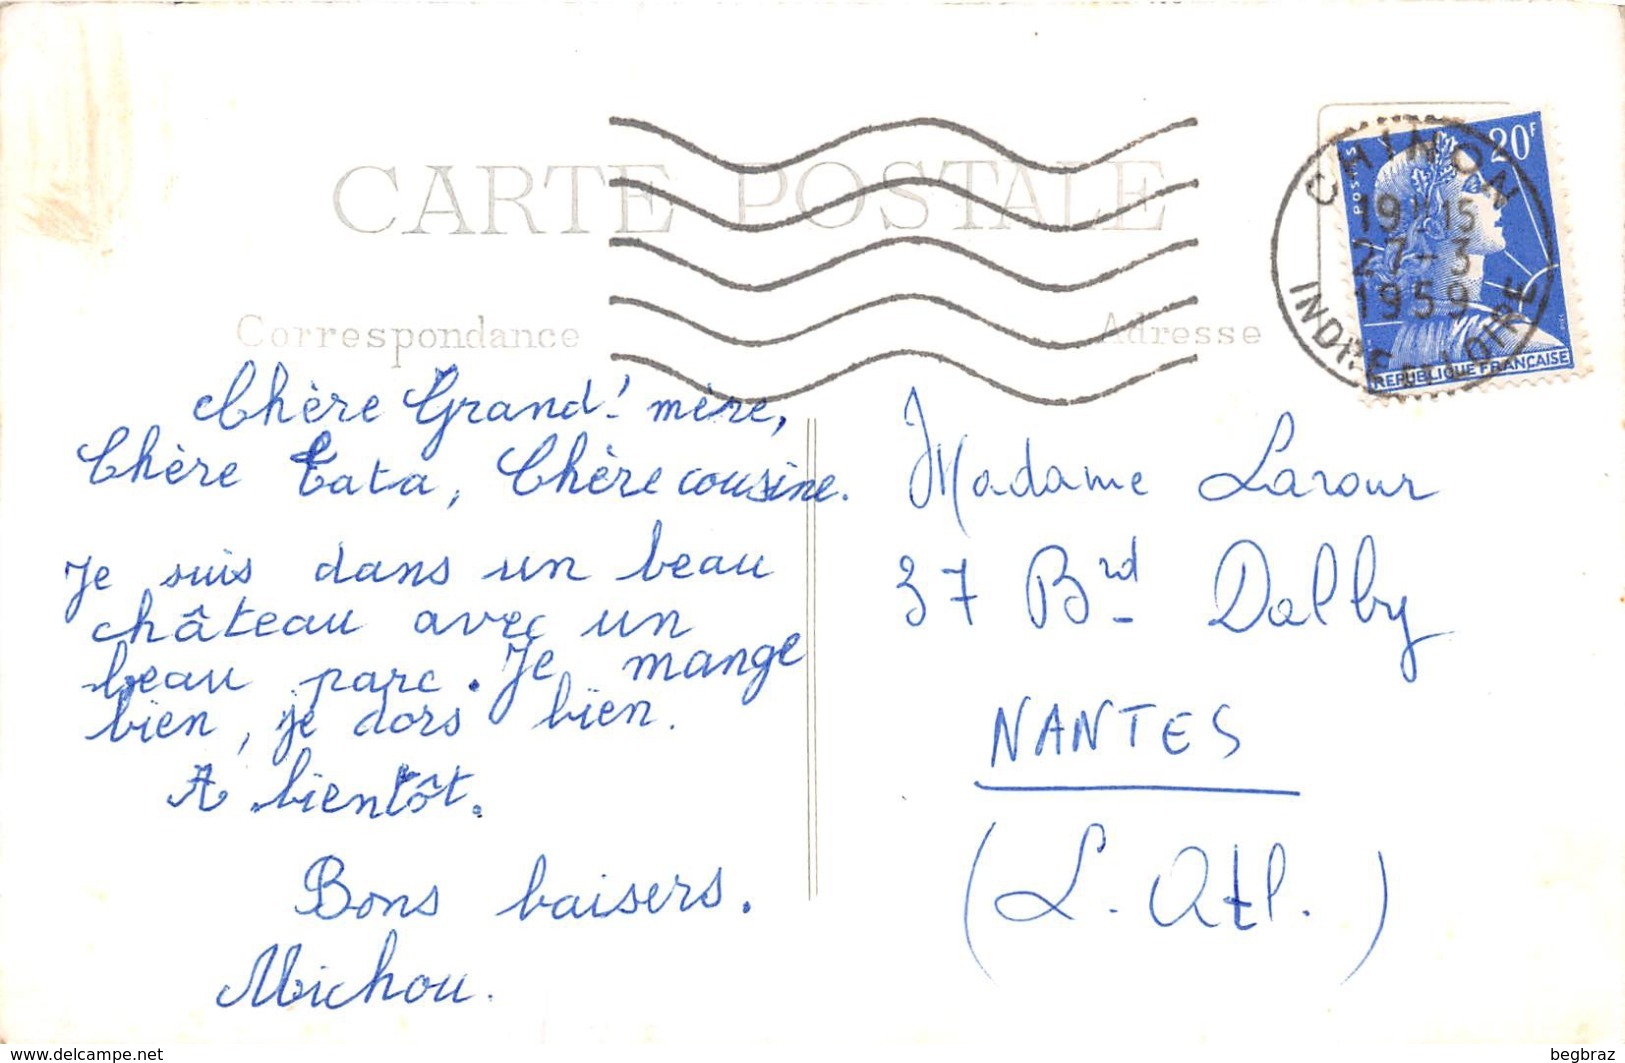 CARTE POSTALE
Correspondance
Adresse
CHINON
19H15
27-3
1959
INDRE-ET-LOIRE
POSTES
20F
REPUBLIQUE FRANÇAISE
Chère Grand' mère,
Chère Tata, Chère cousine.
Je suis dans un beau
château avec un
beau parc. Je mange
bien, je dors bien.
A bientôt.
Bons baisers.
Michou.
Madame Larour
37 Brd Dalby
NANTES
(L. Atl.)
https://www.delcampe.net
begbraz